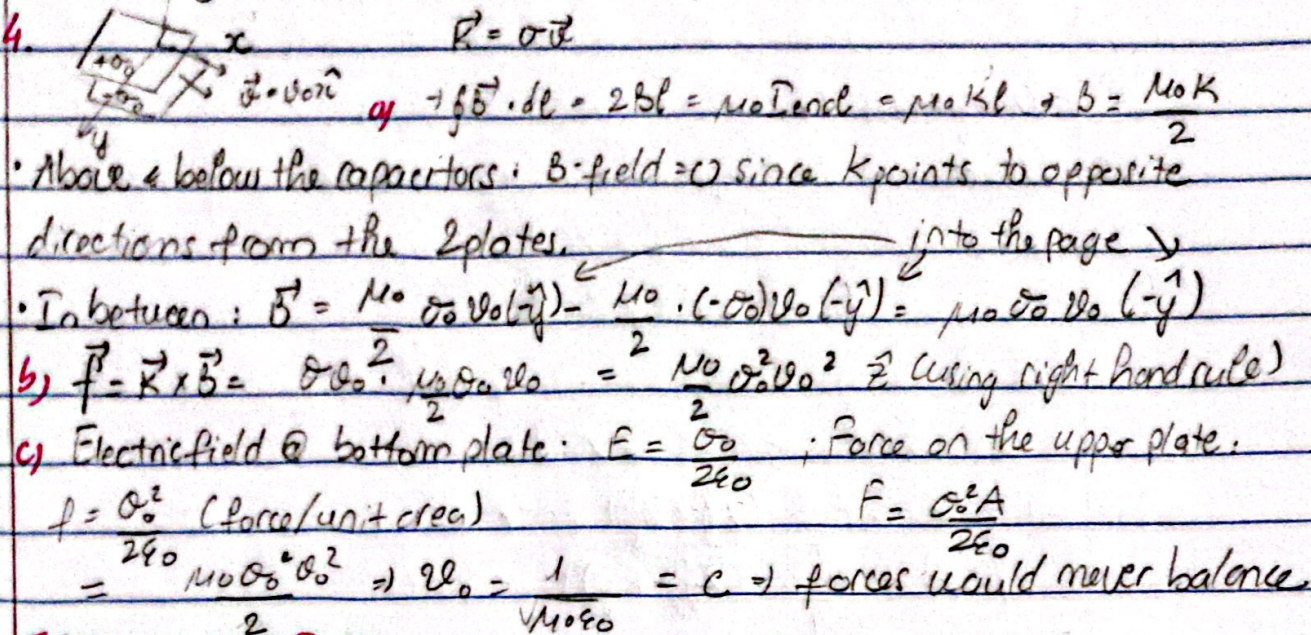 4. x K⃗ = σv⃗
+σ₀ -σ₀ v⃗ = v₀x̂ y
a) → ∮B⃗ · dl = 2Bl = μ₀Iencl = μ₀Kl → B = μ₀K/2
• Above & below the capacitors: B-field = 0 since K points to opposite
directions from the 2 plates. into the page
• In between: B⃗ = μ₀/2 σ₀v₀(-ŷ) - μ₀/2 · (-σ₀)v₀(-ŷ) = μ₀σ₀v₀(-ŷ)
b) f⃗ = K⃗ × B⃗ = σv₀ · μ₀/2 σ₀v₀ = μ₀/2 σ₀²v₀² ẑ (using right hand rule)
c) Electric field @ bottom plate: E = σ₀/2ε₀ ; Force on the upper plate:
f = σ₀²/2ε₀ (force/unit area) F = σ₀²A/2ε₀
= μ₀σ₀²v₀²/2 ⇒ v₀ = 1/√μ₀ε₀ = c ⇒ forces would never balance.